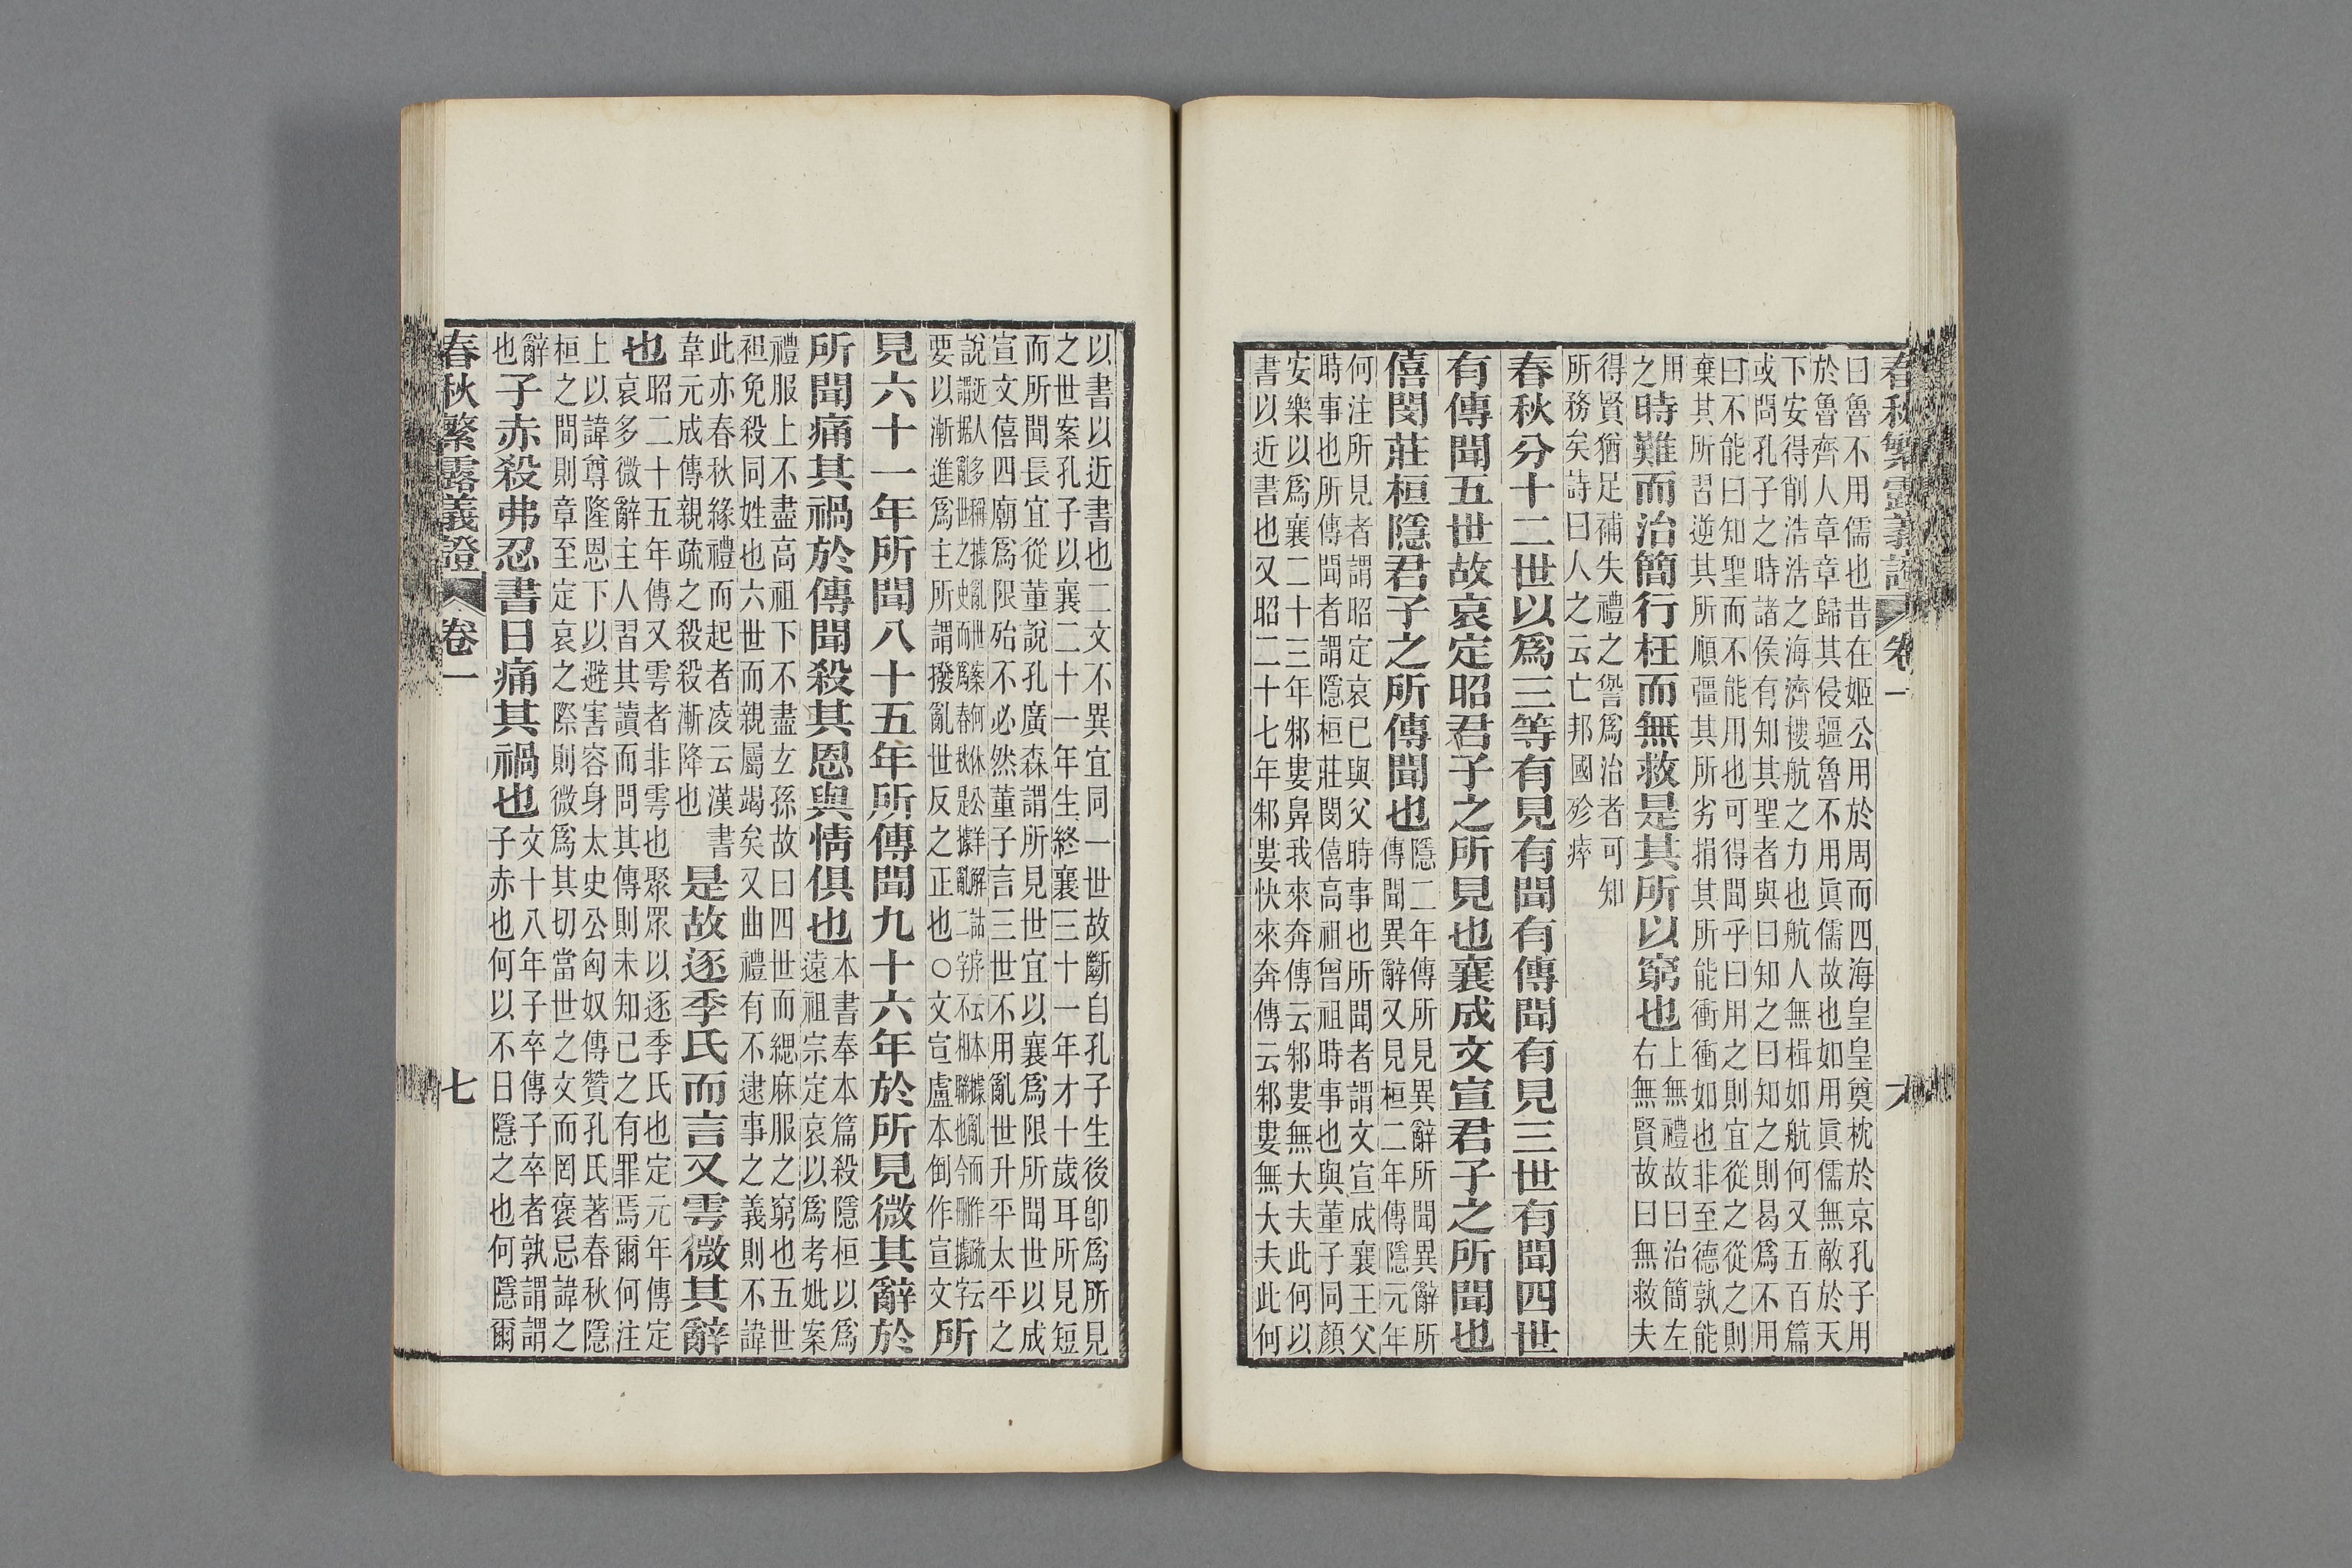 春秋繁露義證 卷一 六
曰魯不用儒也昔在姬公用於周而四海皇皇奠枕於京孔子用
於魯齊人章章歸其侵疆魯不用眞儒故也如用眞儒無敵於天
下安得削浩浩之海濟樓航之力也航人無楫如航何又五百篇
或問孔子之時諸侯有知其聖者與曰知之曰知之則曷爲不用
曰不能曰知聖而不能用也可得聞乎曰用之則宜從之從之則
棄其所習逆其所順彊其所劣捐其所能衝衝如也非至德孰能
用
之時難而治簡行枉而無救是其所以窮也上無禮故曰治簡左
右無賢故曰無救夫
得賢猶足補失禮之譽爲治者可知
所務矣詩曰人之云亡邦國殄瘁
春秋分十二世以爲三等有見有聞有傳聞有見三世有聞四世
有傳聞五世故哀定昭君子之所見也襄成文宣君子之所聞也
僖閔莊桓隱君子之所傳聞也隱二年傳所見異辭所聞異辭所
傳聞異辭又見桓二年傳隱元年
何注所見者謂昭定哀已與父時事也所聞者謂文宣成襄王父
時事也所傳聞者謂隱桓莊閔僖高祖曾祖時事也與董子同顏
安樂以爲襄二十三年邾婁鼻我來奔傳云邾婁無大夫此何以
書以近書也又昭二十七年邾婁快來奔傳云邾婁無大夫此何
以書以近書也二文不異宜同一世故斷自孔子生後卽爲所見
之世案孔子以襄二十一年生終襄三十一年才十歲耳所見短
而所聞長宜從董說孔廣森謂所見世宜以襄爲限所聞世以成
宣文僖四廟爲限殆不必然董子言三世不用亂世升平太平之
說近人多稱據亂世案何休公羊解詁序云本據亂而作疏云
謂據亂世之史而爲春秋是據亂二字不相聯也今刪據字
要以漸進爲主所謂撥亂世反之正也○文宣盧本倒作宣文所
見六十一年所聞八十五年所傳聞九十六年於所見微其辭於
所聞痛其禍於傳聞殺其恩與情俱也本書奉本篇殺隱桓以爲
遠祖宗定哀以爲考妣案
禮服上不盡高祖下不盡玄孫故曰四世而緦麻服之窮也五世
袒免殺同姓也六世而親屬竭矣又曲禮有不逮事之義則不諱
此亦春秋緣禮而起者凌云漢書
韋元成傳親疏之殺殺漸降也是故逐季氏而言又雩微其辭
也昭二十五年傳又雩者非雩也聚眾以逐季氏也定元年傳定
哀多微辭主人習其讀而問其傳則未知己之有罪焉爾何注
上以諱尊隆恩下以避害容身太史公匈奴傳贊孔氏著春秋隱
桓之間則章至定哀之際則微爲其切當世之文而罔褒忌諱之
辭
也子赤殺弗忍書日痛其禍也文十八年子卒傳子卒者孰謂謂
子赤也何以不日隱之也何隱爾
春秋繁露義證 卷一 七